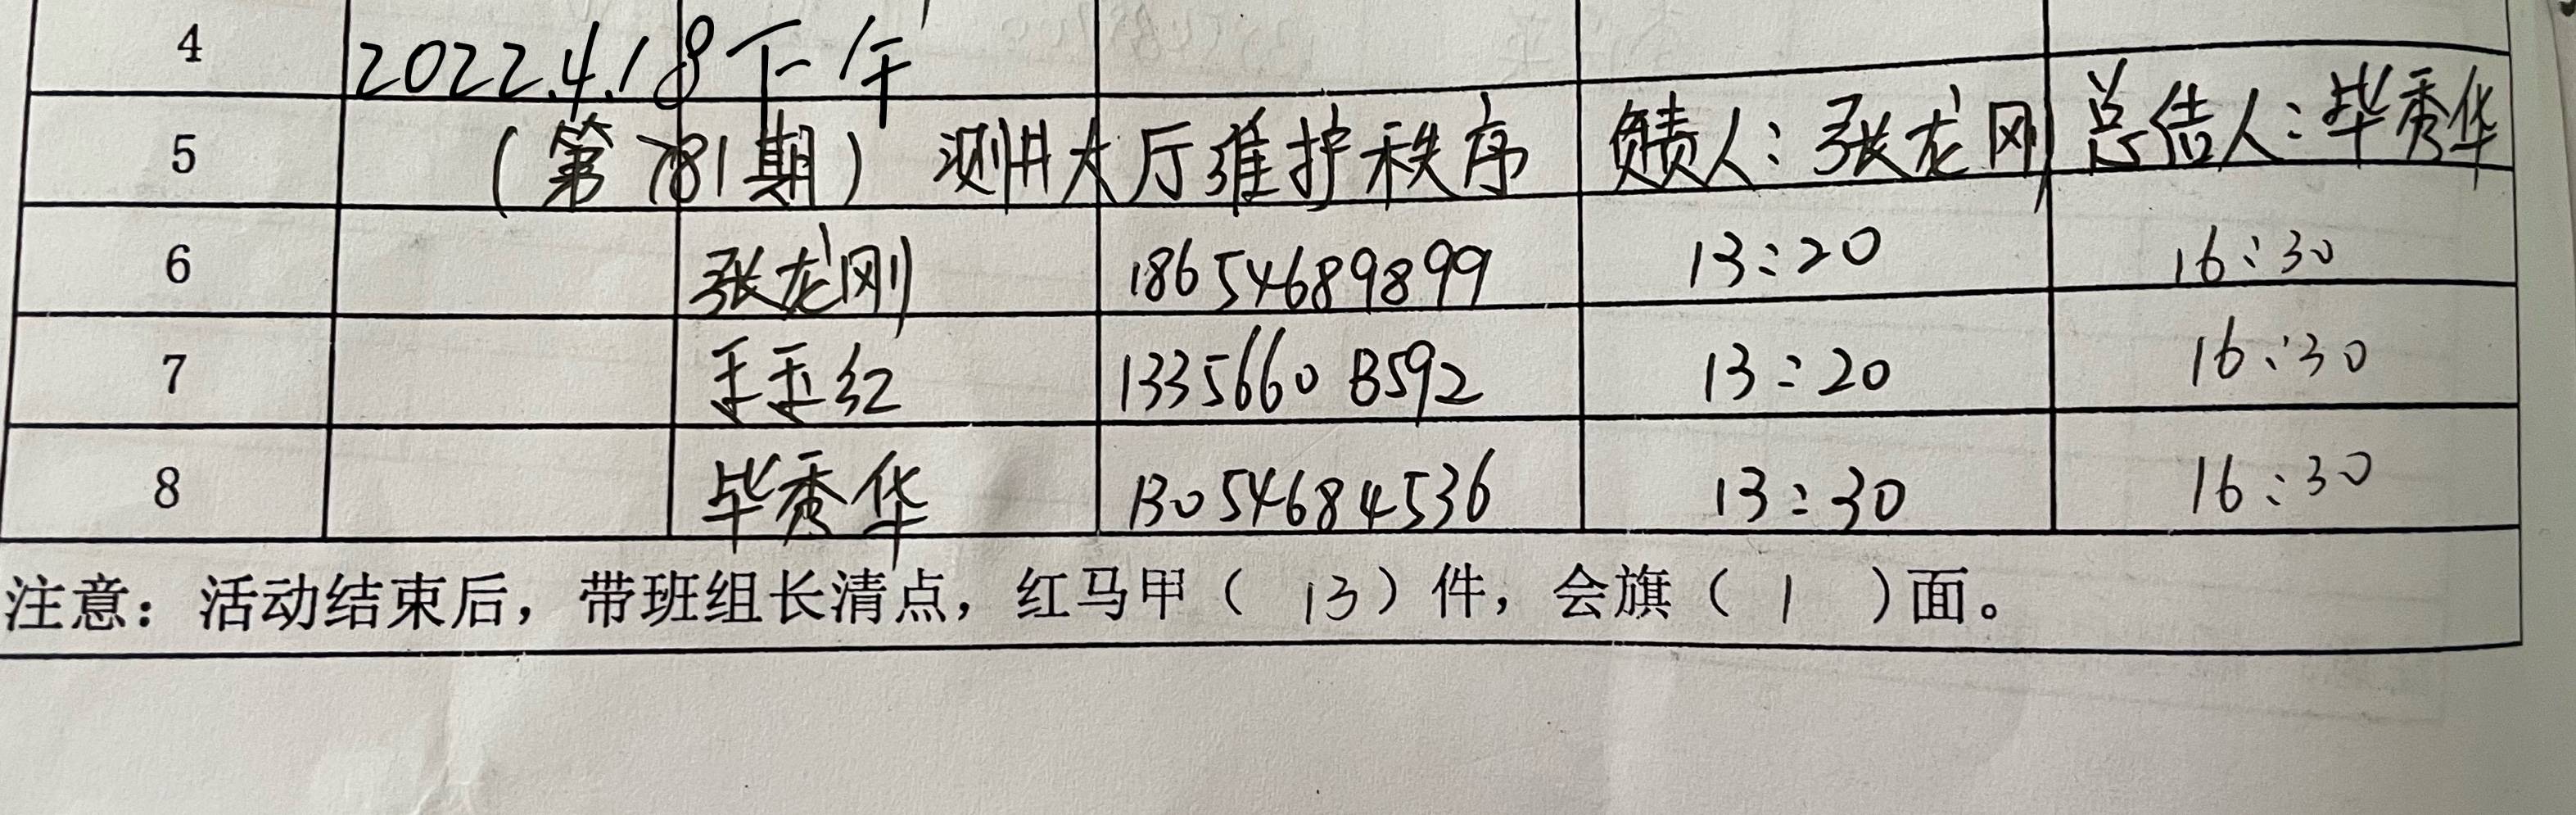 4 2022.4.18下午
5 (第781期) 测井大厅维护秩序 负责人:张龙刚 总结人:毕秀华
6 张龙刚 18654689899 13:20 16:30
7 王玉红 13356603592 13:20 16:30
8 毕秀华 13054684536 13:30 16:30
注意：活动结束后，带班组长清点，红马甲（ 13）件，会旗（ 1 ）面。